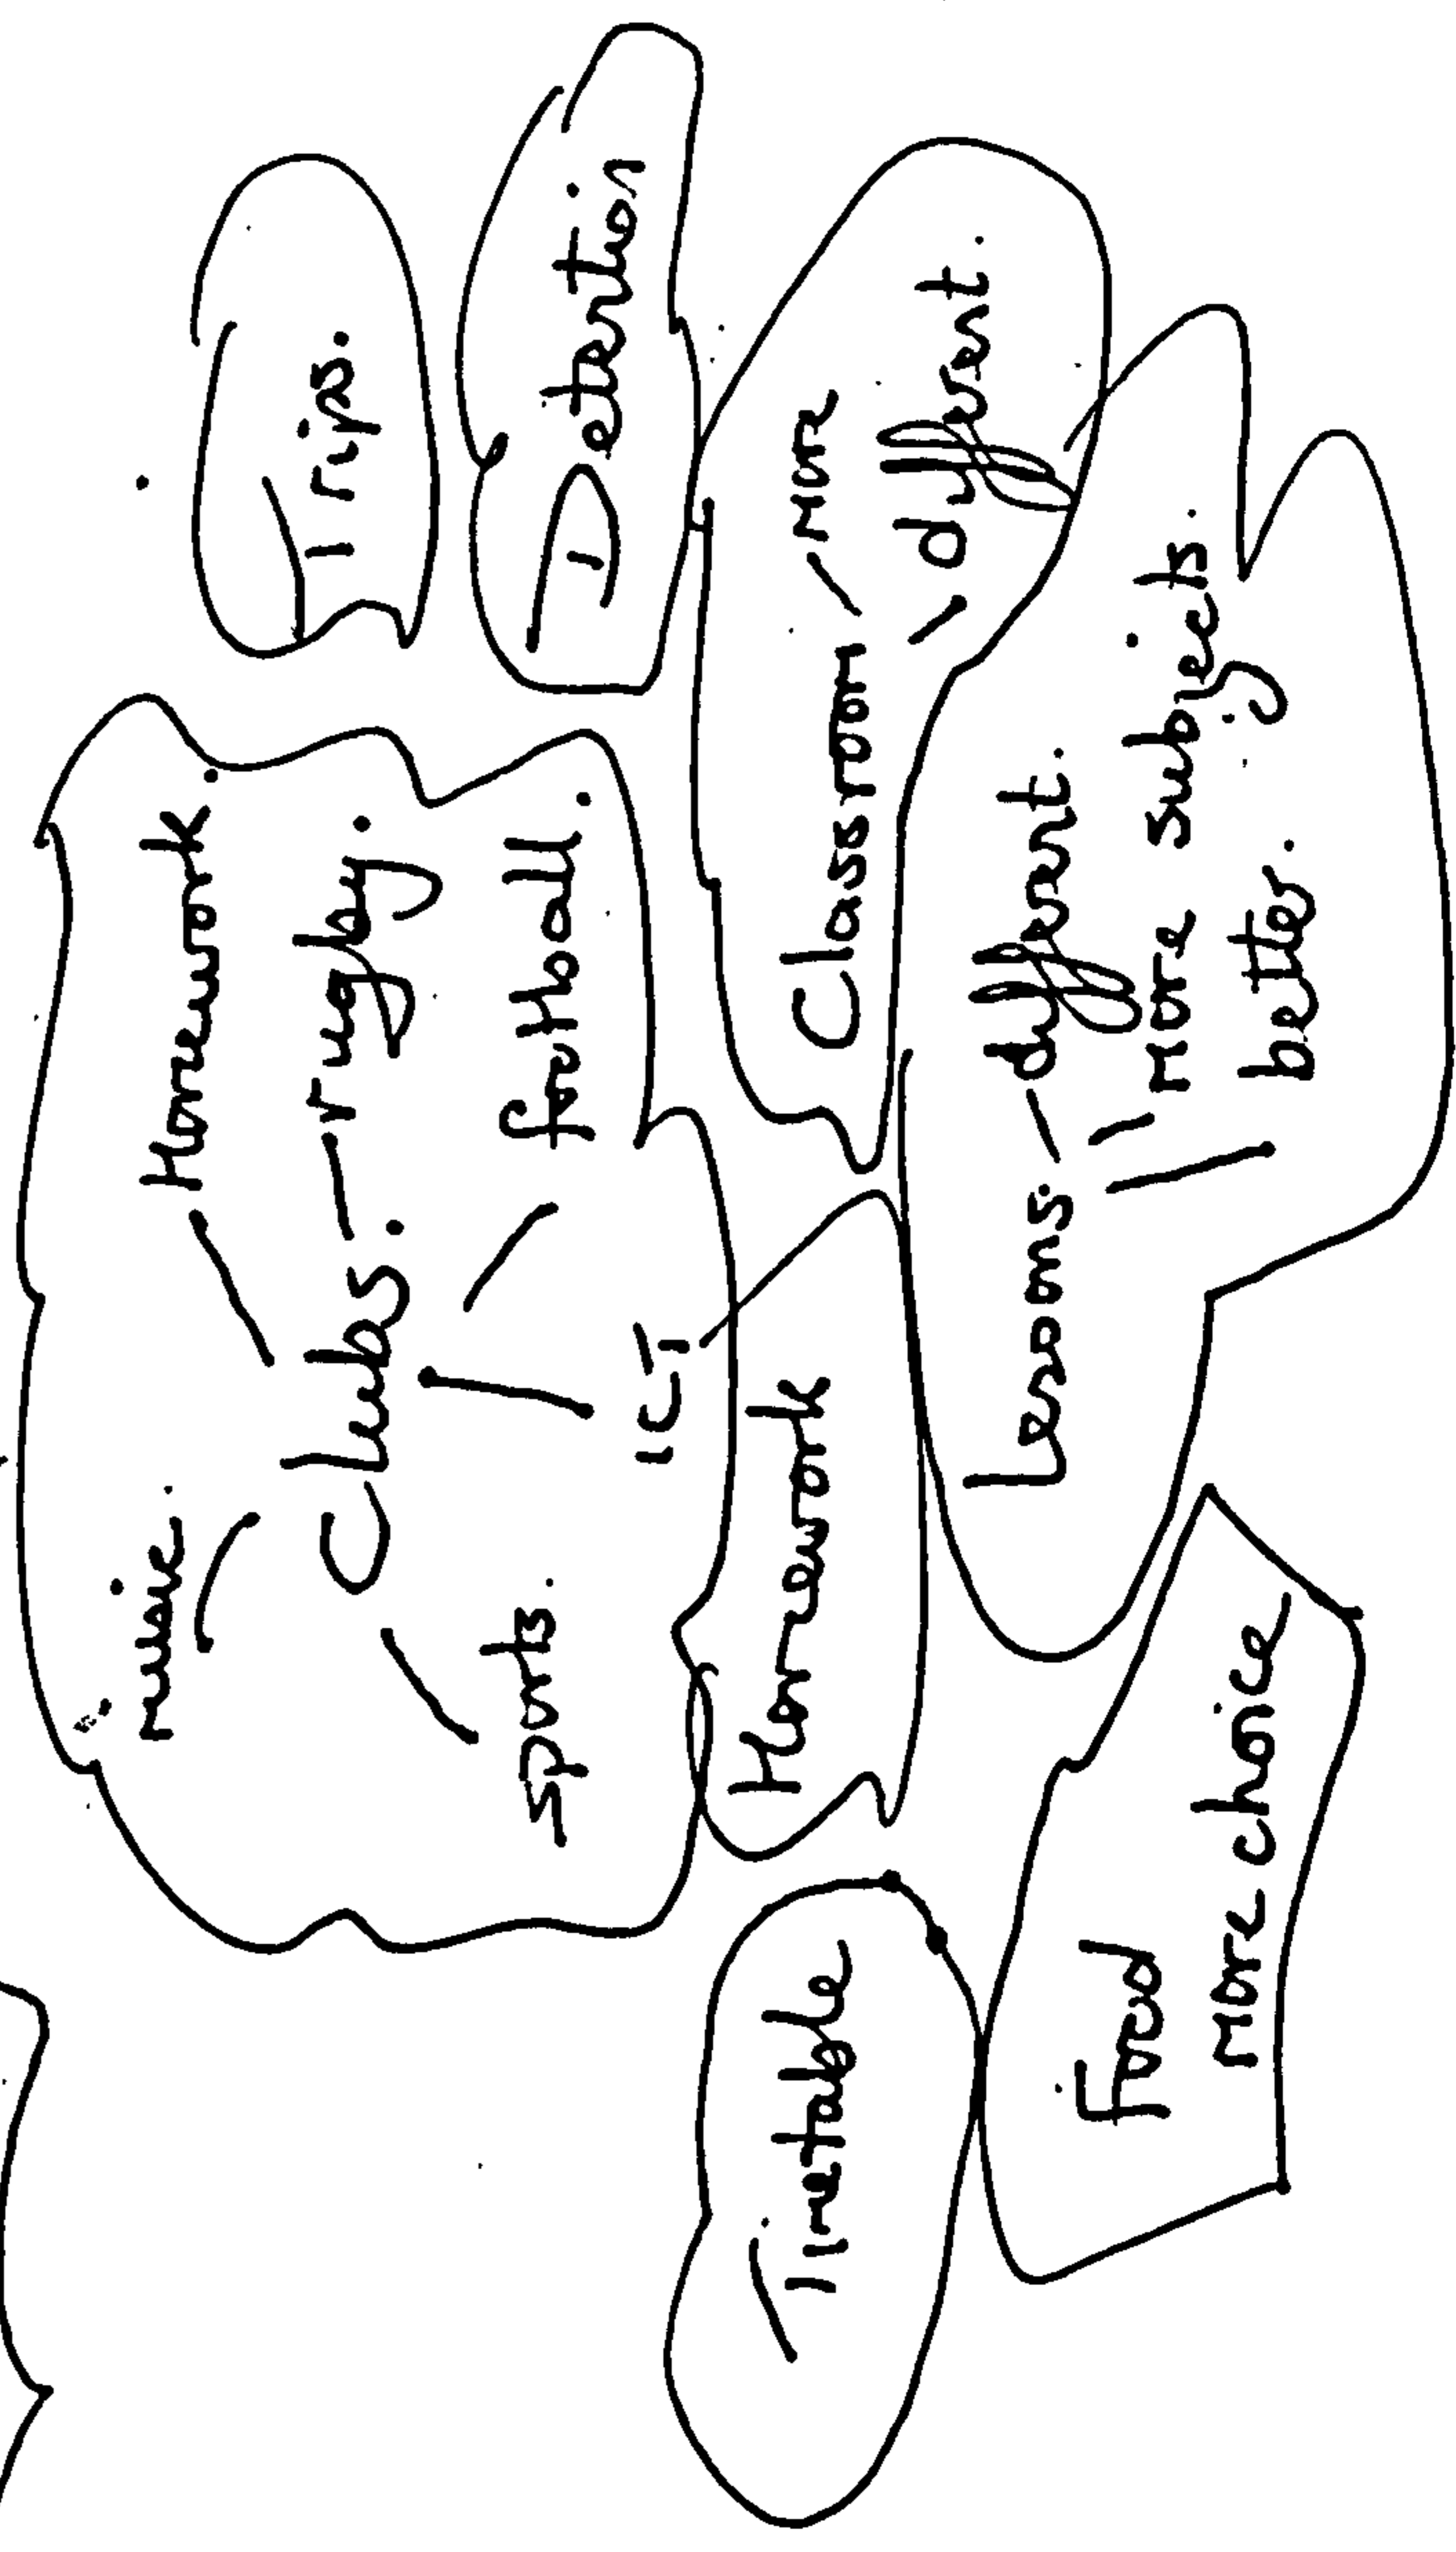 music.
Homework.
Clubs.
rugby.
sports.
football.
ICT
Trips.
Detention
Homework
Classroom
More
different.
Timetable
Lessons.
different.
More subjects.
better.
Food
More choice